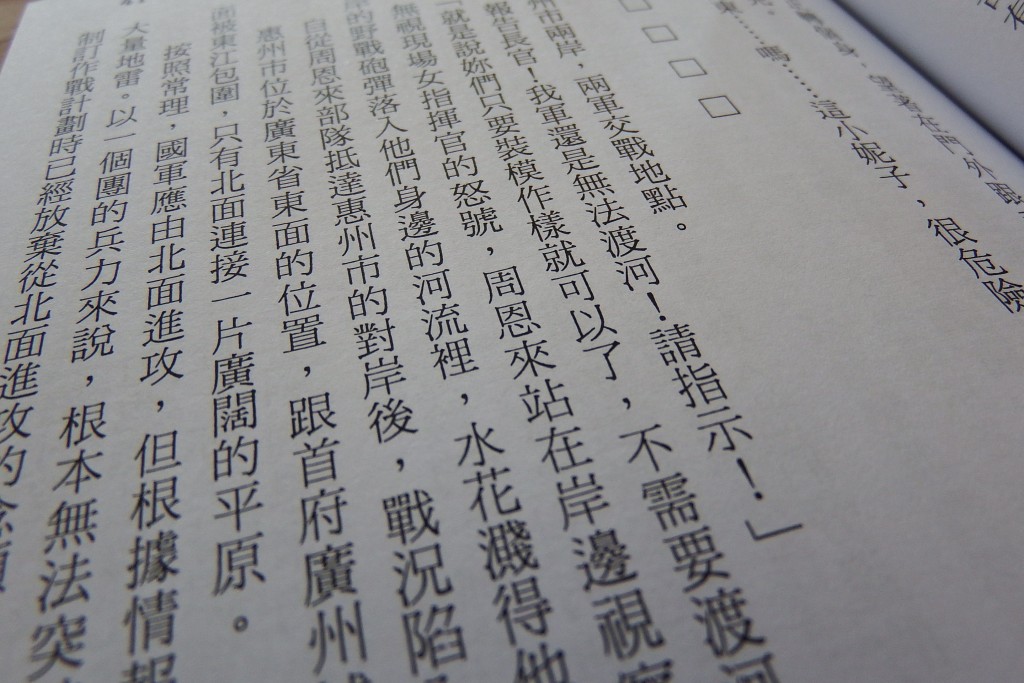 很危險
東……嗎……這小妮子，
□□□□
州市兩岸，兩軍交戰地點。
報告長官！我軍還是無法渡河！請指示！」
「就是說妳們只要裝模作樣就可以了，不需要渡河
無視現場女指揮官的怒號，周恩來站在岸邊視察
岸的野戰砲彈落入他們身邊的河流裡，水花濺得他
自從周恩來部隊抵達惠州市的對岸後，戰況陷
惠州市位於廣東省東面的位置，跟首府廣州
面被東江包圍，只有北面連接一片廣闊的平原。
按照常理，國軍應由北面進攻，但根據情報
大量地雷。以一個團的兵力來說，根本無法突
制訂作戰計劃時已經放棄從北面進攻的念頭